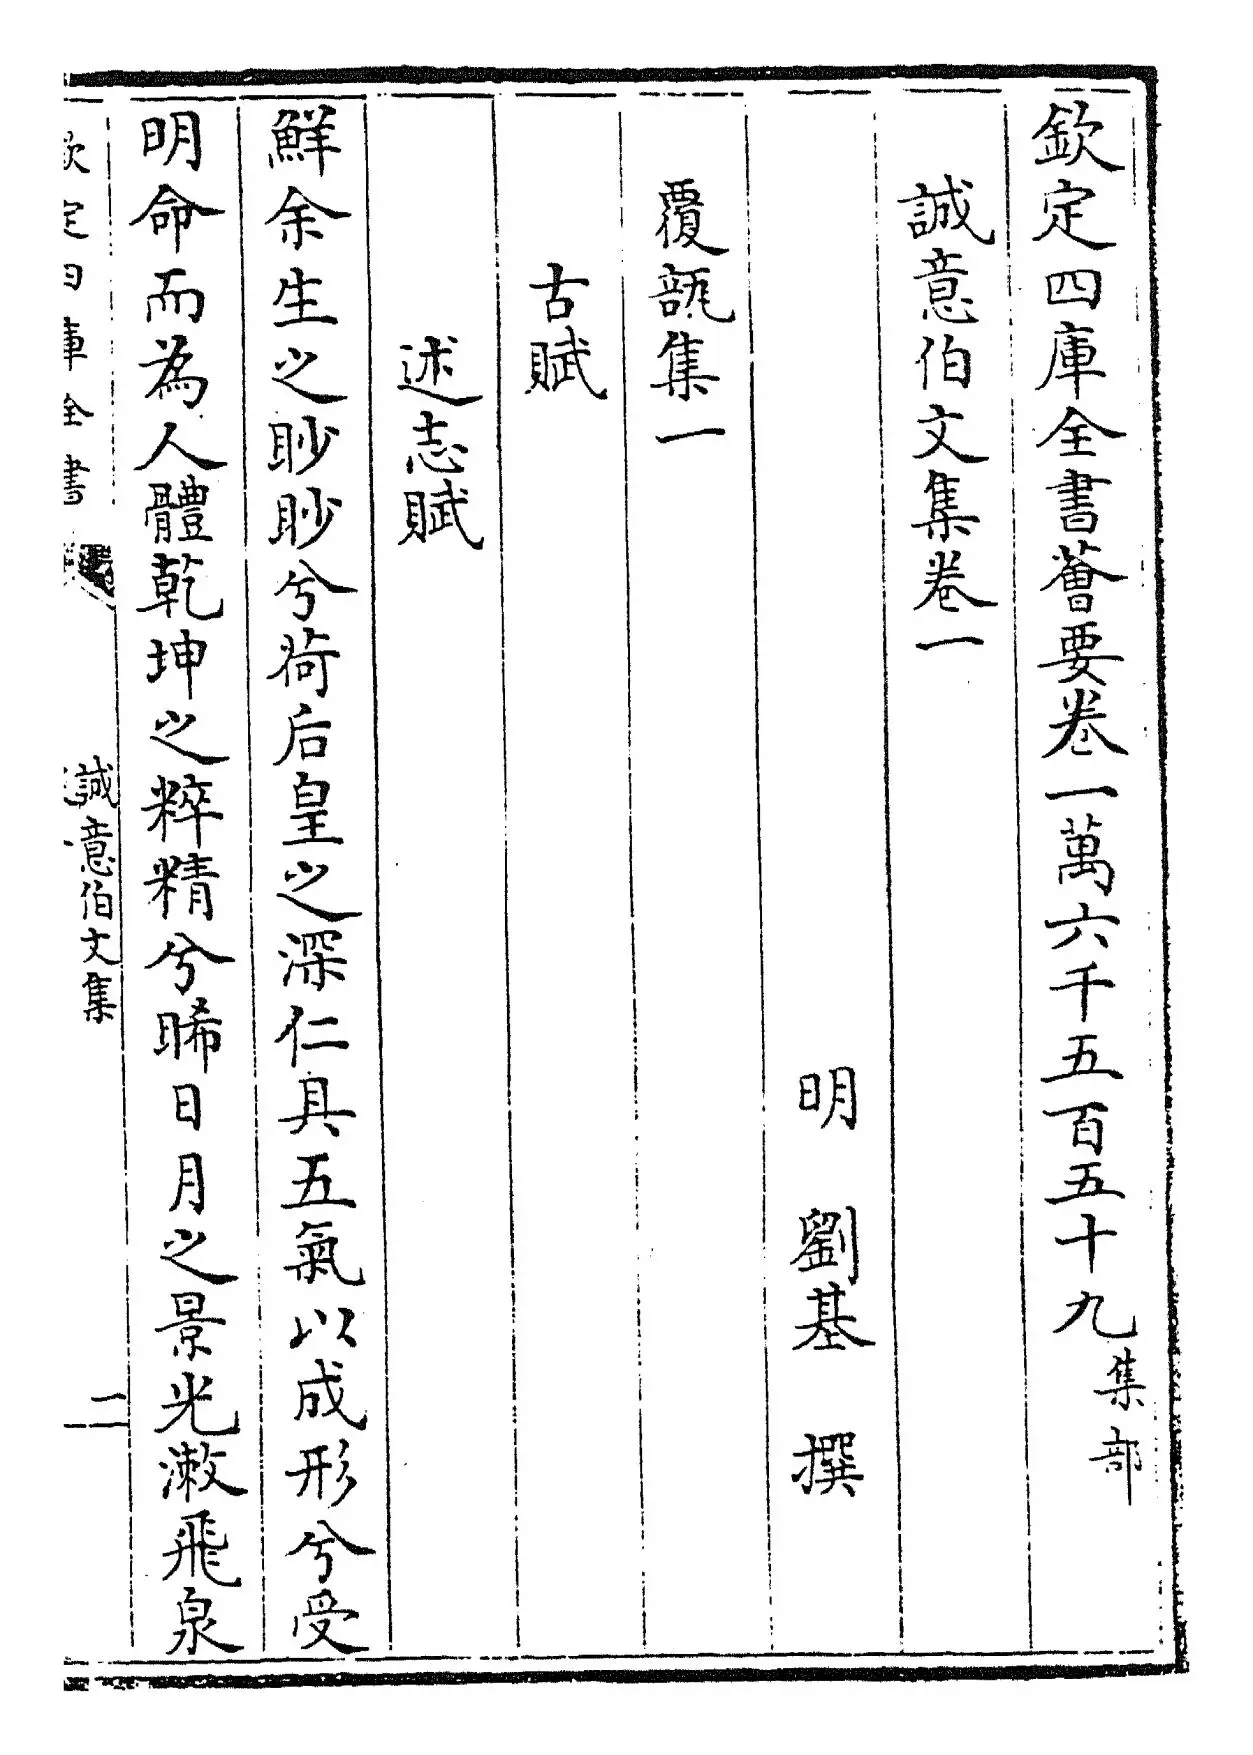 欽定四庫全書薈要卷一萬六千五百五十九集部
誠意伯文集卷一
明 劉基 撰
覆瓿集一
古賦
述志賦
鮮余生之眇眇兮荷后皇之深仁具五氣以成形兮受
明命而為人體乾坤之粹精兮晞日月之景光漱飛泉
欽定四庫全書
誠意伯文集
一